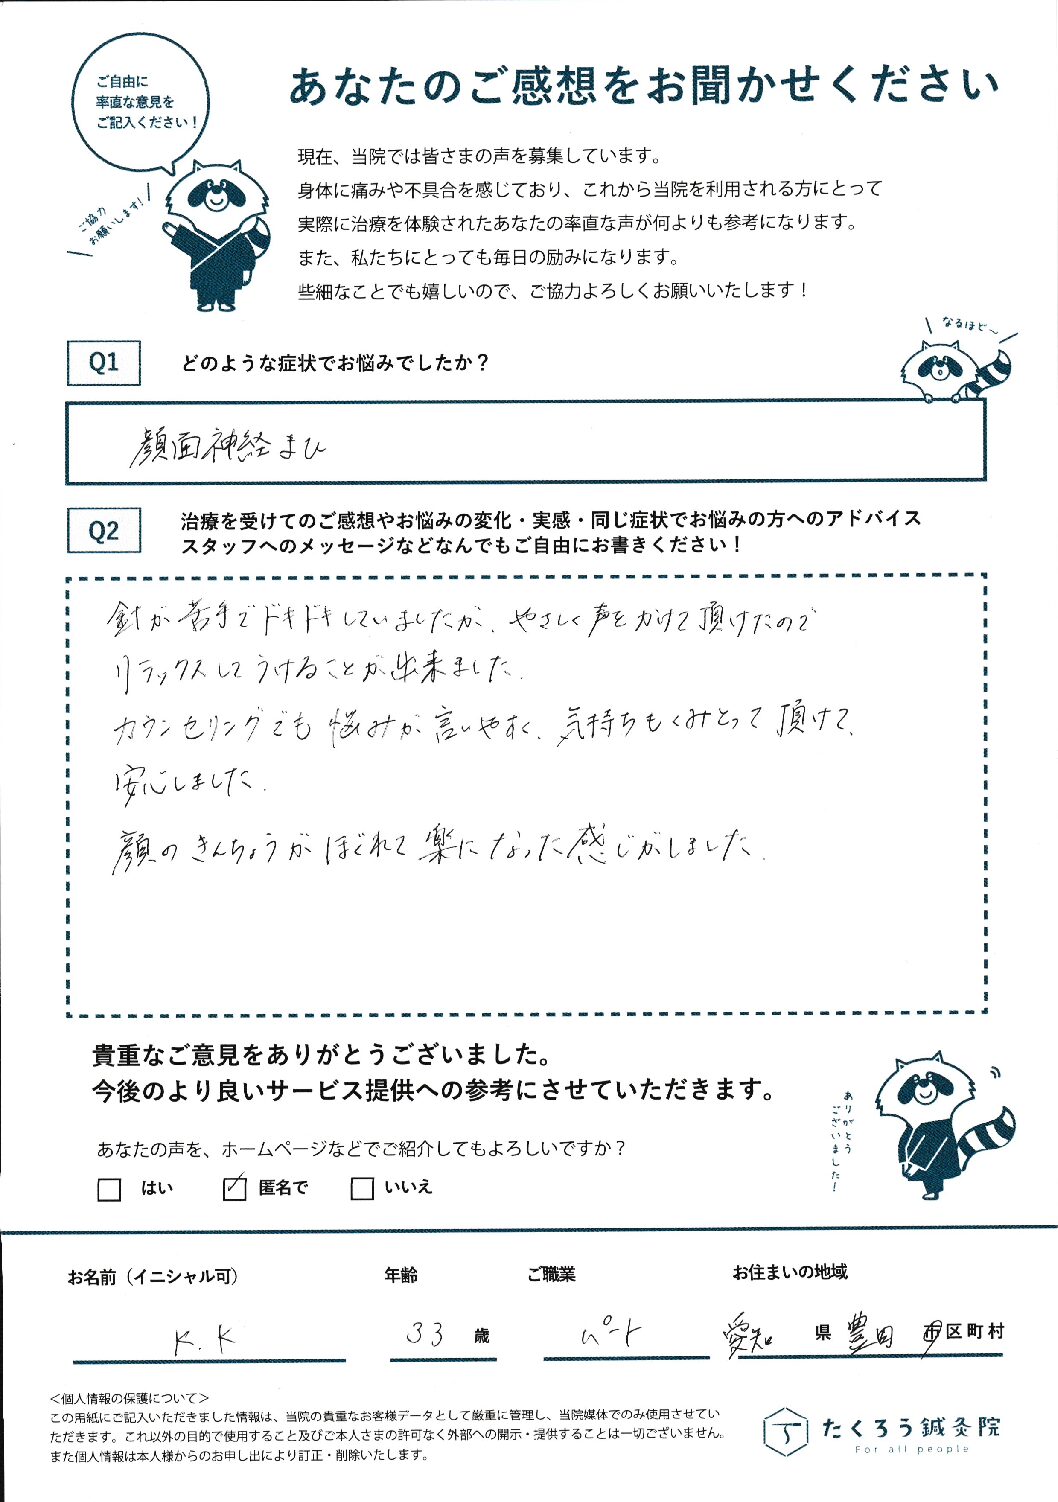 ご自由に
率直な意見を
ご記入ください！
あなたのご感想をお聞かせください
ご協力
お願いします！
現在、当院では皆さまの声を募集しています。
身体に痛みや不具合を感じており、これから当院を利用される方にとって
実際に治療を体験されたあなたの率直な声が何よりも参考になります。
また、私たちにとっても毎日の励みになります。
些細なことでも嬉しいので、ご協力よろしくお願いいたします！
なるほど〜
Q1 どのような症状でお悩みでしたか？
顔面神経まひ
Q2 治療を受けてのご感想やお悩みの変化・実感・同じ症状でお悩みの方へのアドバイス
スタッフへのメッセージなどなんでもご自由にお書きください！
針が苦手でドキドキしていましたが、やさしく声をかけて頂けたので
リラックスしてうけることが出来ました。
カウンセリングでも悩みが言いやすく、気持ちもくみとって頂けて、
安心しました。
顔のきんちょうがほぐれて楽になった感じがしました。
貴重なご意見をありがとうございました。
今後のより良いサービス提供への参考にさせていただきます。
ありがとう
ございました！
あなたの声を、ホームページなどでご紹介してもよろしいですか？
はい 匿名で いいえ
お名前（イニシャル可） 年齢 ご職業 お住まいの地域
K.K 33 歳 パート 愛知 県 豊田 市区町村
＜個人情報の保護について＞
この用紙にご記入いただきました情報は、当院の貴重なお客様データとして厳重に管理し、当院媒体でのみ使用させてい
ただきます。これ以外の目的で使用すること及びご本人さまの許可なく外部への開示・提供することは一切ございません。
また個人情報は本人様からのお申し出により訂正・削除いたします。
たくろう鍼灸院
For all people